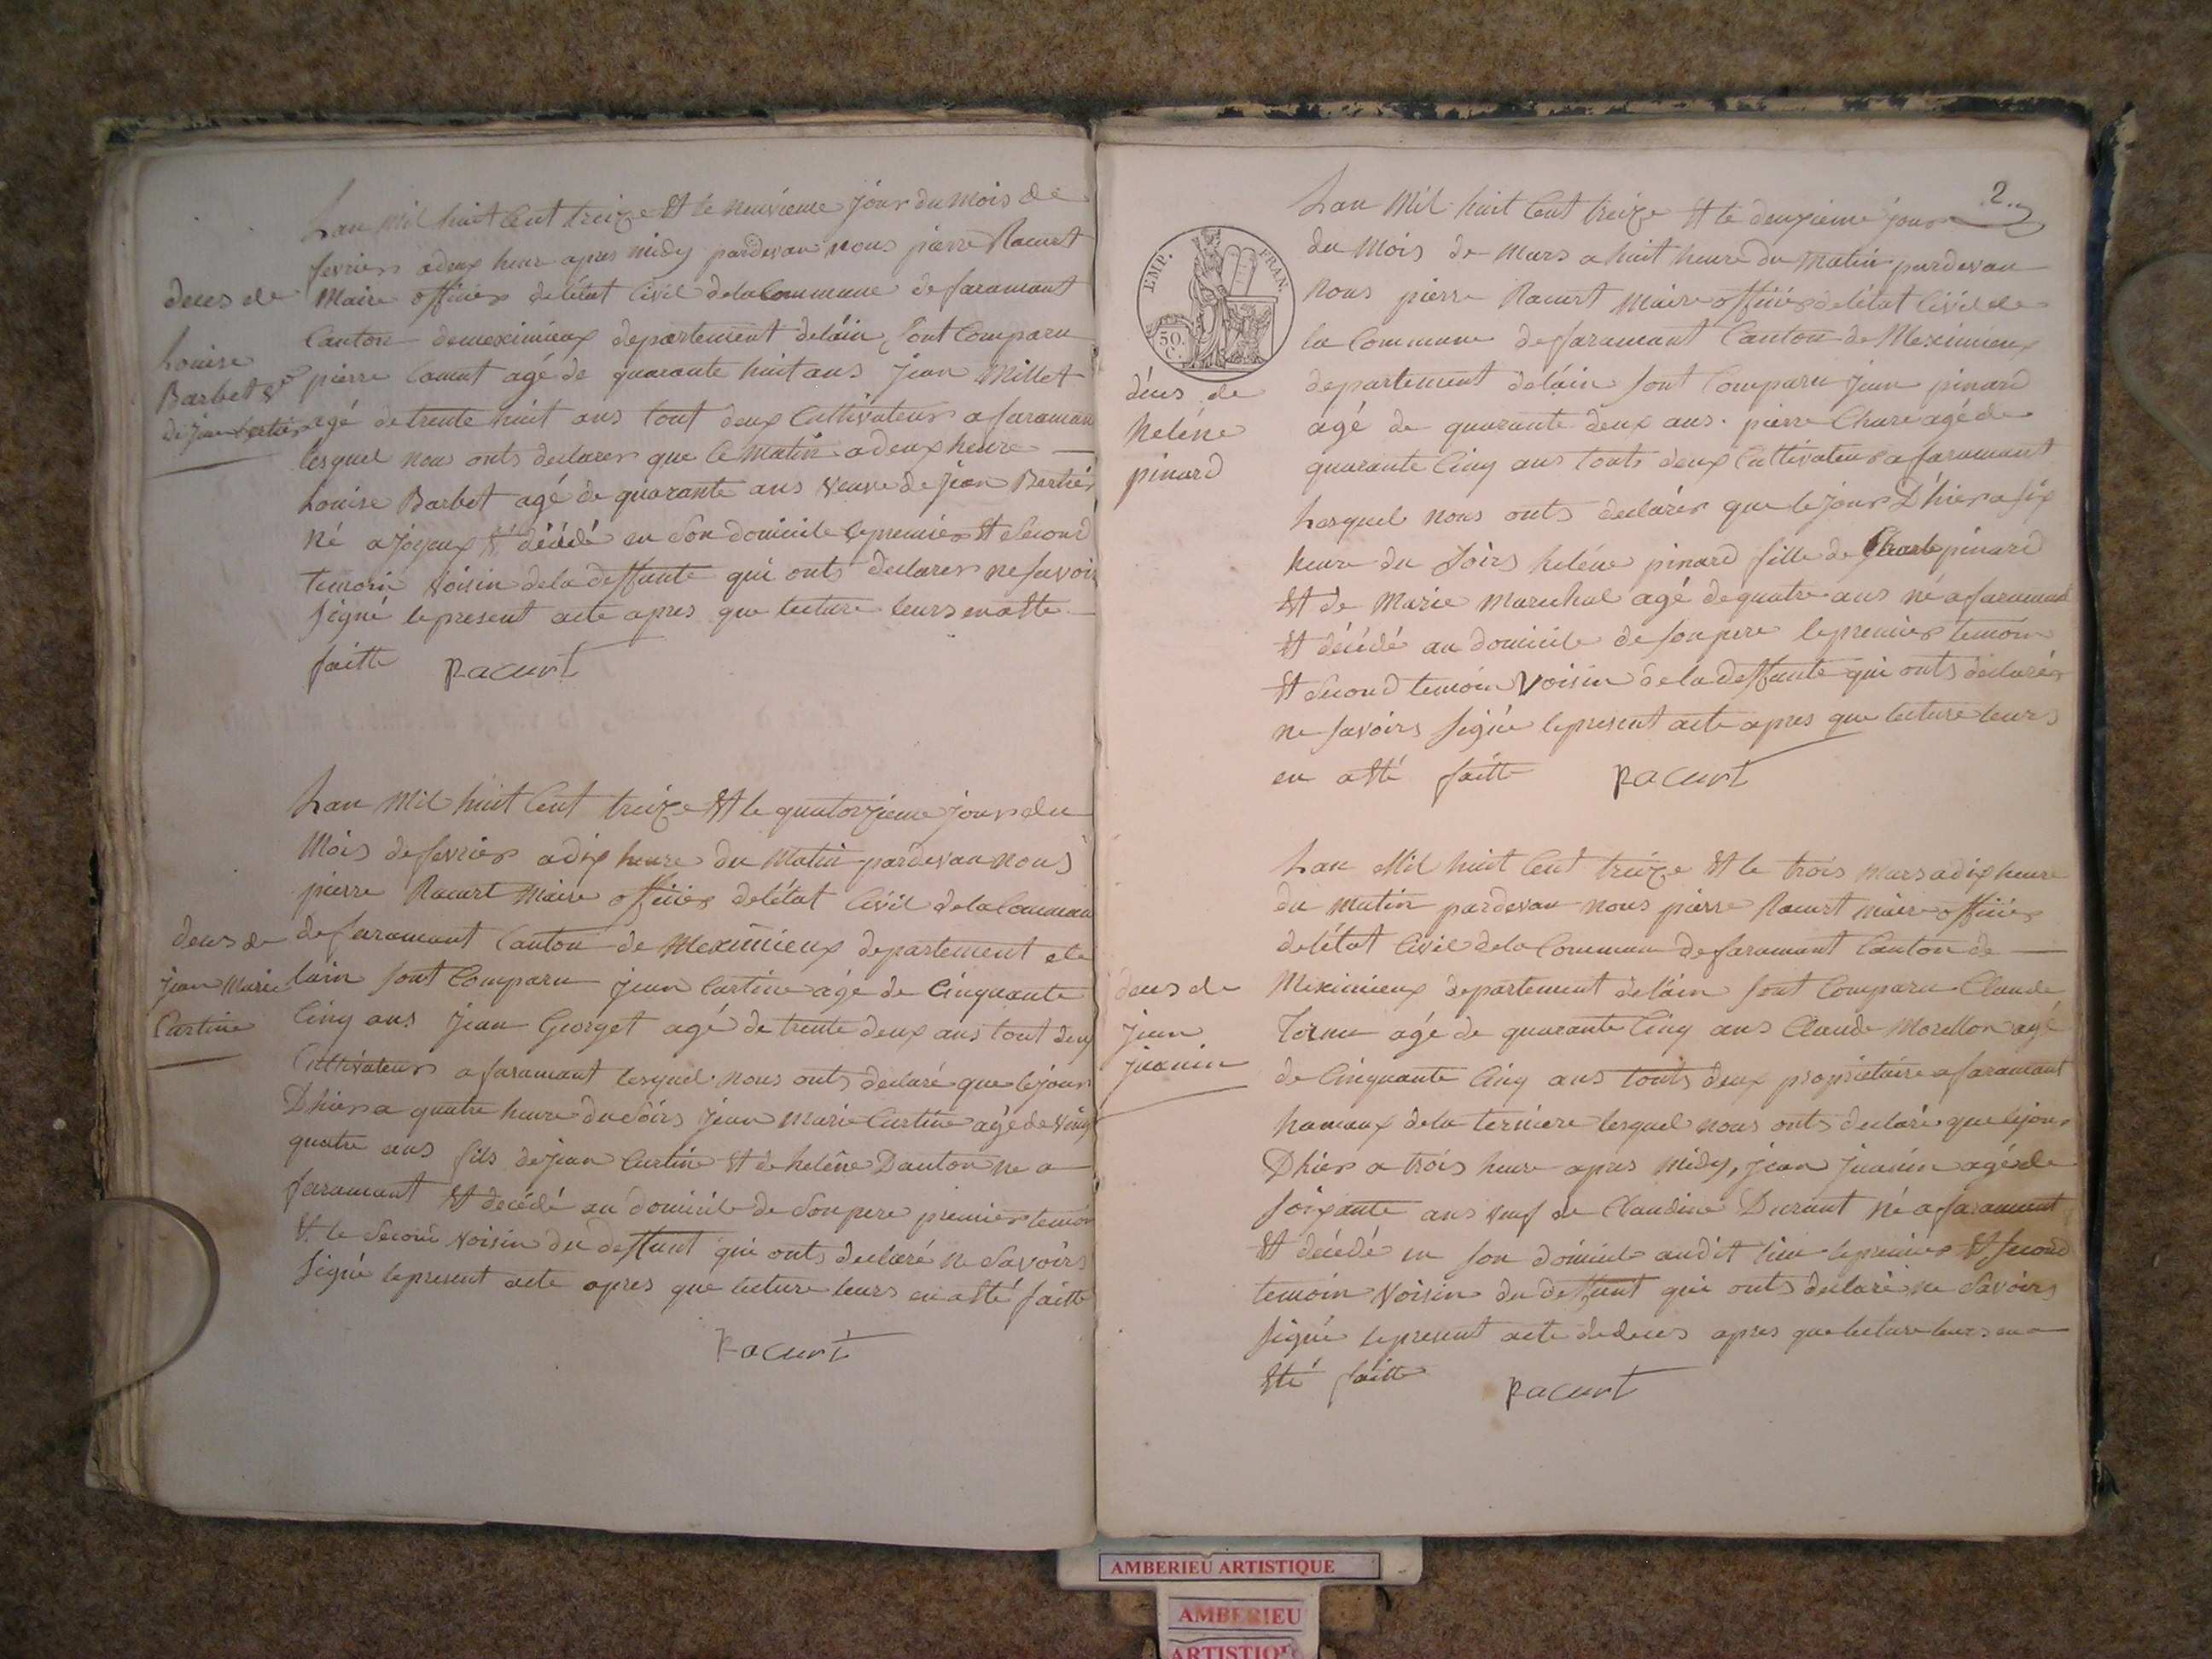 Lan Mil huit Cent treize Et le neuvieme jour du mois de
fevrier a deux heur apres midy pardevan nous pierre Racurt
Maire officier de létat Civil dela Commune de faramant
Canton de meximieux departement de láin, sont Comparu
pierre agé de quarante huit ans jean Millet
agé de trente huit ans tout deux Cultivateur a faraman
lesquel nous onts declarer que Ce matin a deux heure
Louise Barbet agé de quarante ans veuve de jean Bertiér
Né a joyeux Et décédé en Son domicile le premier Et Second
temoin voisin dela deffunte qui onts declarer ne savoir
signé le present acte apres que lecture leurs en a Eté
faitte Racurt
deces de
Louise
Barbet Ve
de jean bertier
Lan Mil huit Cent treize Et le quatorzieme jour du
Mois de fevrier a dix heure du Matin pardevan nous
pierre Racurt Maire officier de létat Civil dela Commun
de faramant Canton de Meximieux departement de
lain sont Comparu jean Cartine agé de Cinquante
Cinq ans jean Georget agé de trente deux ans tout deux
Cultivateur a faramant lesquel nous onts declaré que le jour
Dhier a quatre heure du Soirs jean Marie Cartine agé de vingt
quatre ans fils de jean Cartine Et de heléne Danton Ne a
faramant Et decédé au domicile de Son pere premier temoin
Et le Second voisin du deffunt qui onts declaré ne Savoirs
signé le present acte apres que lecture leurs en a Eté faitte
Racurt
deces de
jean Marie
Cartine
2
Lan Mil huit Cent treize Et le deuxieme jour
du Mois de Mars a huit heure du Matin pardevan
Nous pierre Racurt Maire officiér de létat Civil de
la Commune de faramant Canton de Meximieux
departement de láin sont Comparu jean pinard
agé de quarante deux ans. pierre Chare agé de
quarante Cinq ans touts deux Cultivateur a faramant
Lesquel nous onts declarér que le jour D'hier a six
heure du Soirs heléne pinard fille de pinard
Et de Marie Marechal agé de quatre ans né a faramant
Et décédé au domicile de son pere le premier temoin
Et Second temoin Voisin de la deffunte qui onts déclarér
ne savoirs signé le present acte apres que lecture leurs
en a Eté faitte Racurt
EMP. FRAN.
50. C.
déces de
heléne
pinard
Lan Mil huit Cent treize Et le trois mars a dix heure
du matin pardevan nous pierre Racurt maire officier
de létat Civil de la Commun de faramant Canton de
Meximieux departement de láin sont Comparu Claude
agé de quarante Cinq ans Claude Morellon agé
de Cinquante Cinq ans touts deux propriétaire a faramant
hameaux dela lesquel nous onts declaré que le jour
Dhier a trois heure apres Midy, jean juanin agé de
soixante ans veuf de Claudine Durant Né a faramant
Et décédé en son domicile audit lieu le premier Et second
temoin Voisin du deffunt qui onts declaré ne Savoirs
signé le present acte de deces apres que lecture leurs en a
Eté faitte Racurt
deces de
jean
juanin
AMBERIEU ARTISTIQUE
AMBERIEU
ARTISTIQ